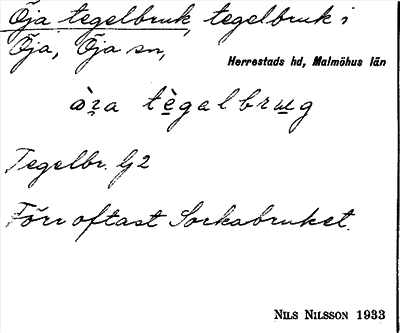 Öja tegelbruk, tegelbruk i
Öja, Öja sn,
Herrestads hd, Malmöhus län
tègalbrug
Tegelbr. G2
Förr oftast Sorkabruket.
NILS NILSSON 1933